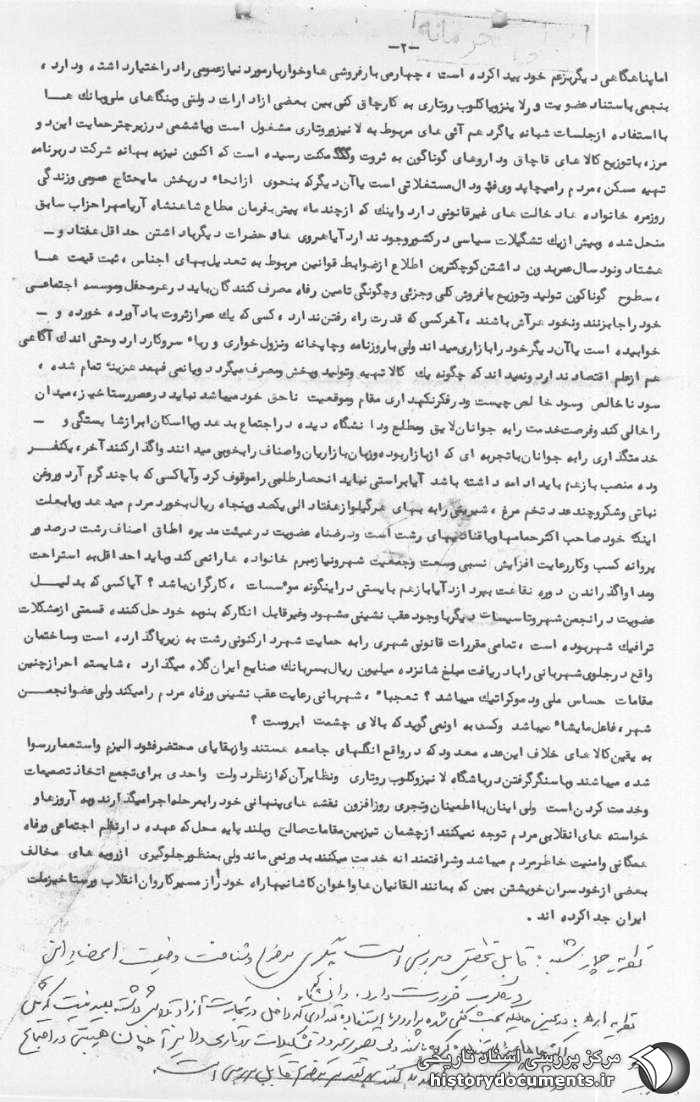 محرمانه
-۲-
اما پناهگاهی دیگر بزعم خود پیدا کرده است ، چهارمی بار فروشی ها و خواربار مورد نیاز عمومی را در اختیار داشته و دارد ،
پنجمی باستناد عضویت در لاینز و یا کلوب روتاری به کار چاق کنی بین بعضی از ادارات دولتی و بنگاههای ملی و بانک هـا
با استفاده از جلسات شبانه یا گرد هم آئی های مربوط به لاینز و روتاری مشغول است و یا ششمی در زیر چتر حمایت این و
مرز ، با توزیع کالا های قاچاق و داروهای گوناگون به ثروت و مکنت رسیده است که اکنون نیز به بهانه شرکت در برنامه
تهیه مسکن ، مردم را میچاپد و یا آن دیگر که بنحوی از انحاء در پخش مایحتاج عمومی و زندگی
روزمره خانواده ها دخالت های غیرقانونی دارد و اینک که از چند ماه پیش بفرمان مطاع شاهنشاه آریامهر احزاب سابق
منحل شده و بیش از یک تشکیلات سیاسی در کشور وجود ندارد آیا هر وی ها و حضرات دیگر با داشتن حد اقل هفتاد و -
هشتاد و نود سال عمر بدون داشتن کوچکترین اطلاع از ضوابط قوانین مربوط به تعدیل بهای اجناس ، ثبت قیمت هـا
، سطوح گوناگون تولید و توزیع یا فروش کلی و جزئی و چگونگی تامین رفاه مصرف کنندگان باید در هر محفل و موسسه اجتماعـی
خود را جا بزنند و نخود هر آش باشند ، آخر کسی که قدرت راه رفتن ندارد ، کسی که یک عمر از ثروت باد آورده خورده و -
خوابیده است یا آن دیگر خود را بازاری میداند ولی با روزنامه و چاپخانه و نزول خواری و ربا سر و کار دارد و حتی اندک آگاهی
هم از علم اقتصاد ندارد و نمیداند که چگونه یک کالا تهیه و تولید و پخش و مصرف میگردد و یا نمی فهمد هزینه تمام شده ،
سود ناخالص و سود خالص چیست و در فکر نگهداری مقام و موقعیت ناحق خود میباشد نباید در عصر رستاخیز ، میدان
را خالی کند و فرصت خدمت را به جوانان لایق و مطلع و دانشگاه دیده در اجتماع بدهد و یا امکان ابراز شایستگی و -
خدمتگذاری را به جوانان با تجربه ای که از بازار بوده و زبان بازاریان و اصناف را بخوبی میدانند واگذار کنند آخر ، یکنفـر
و ده منصب باز هم باید ادامه داشته باشد آیا براستی نباید انحصار طلبی را موقوف کرد و آیا کسی که با چند گرم آرد و روغن
نباتی و شکر و چند عدد تخم مرغ ، شیرینی را به بهای هر کیلو از هفتاد الی یکصد و پنجاه ریال بخورد مردم میدهد و یا بعلت
اینکه خود صاحب اکثر حمامها و یا قنادیهای رشت است و در ضمن عضویت در هیئت مدیره اطاق اصناف رشت در صدور
پروانه کسب و کار رعایت افزایش نسبی وسعت و جمعیت شهر و نیاز مبرم خانواده ها را نمی کند و باید احداقل به استراحت
و مدا واگذراندن دوره نقاهت بپردازد آیا باز هم بایستی در اینگونه موسسات ، کارگران باشد ؟ آیا کسی که بدلیـــل
عضویت در انجمن شهر و تاسیسات دیگر با وجود عقب نشینی مشهود و غیرقابل انکار که بنوبه خود حل کننده قسمتی از مشکلات
ترافیک شهر بوده است ، تمامی مقررات قانونی شهری را به حمایت شهردار کنونی رشت به زیر پا گذارده است و ساختمان
واقع در جلوی شهربانی را با دریافت مبلغ شانزده میلیون ریال بسر بانک صنایع ایران کلاه میگذارد ، شایسته احراز چنین
مقامات حساس ملی و دموکراتیک میباشد ؟ تعجبا ، شهربانی رعایت عقب نشینی و رفاه مردم را میکند ولی عضو انجمـــن
شهر ، فاعل مایشاء میباشد و کسی به او نمی گوید که بالای چشمت ابروست ؟
به یقین کالا های خلاف این عده معدود که در واقع انگلهای جامعه هستند و از بقایای محتضر فئودالیزم و استعمار رسوا
شده میباشند و با سنگر گرفتن در باشگاه لاینز و کلوب روتاری و نظایر آن که از نظر دولت واحدی برای تجمع اتخاذ تصمیمات
و خدمت کردن است ولی اینان با اطمینان و تجری روز افزون نقشه های پنهانی خود را بمرحله اجرا میگذارند و به آرزوها و
خواسته های انقلابی مردم توجه نمیکنند از چشمان تیزبین مقامات صالح و بلند پایه محل که عهده دار نظم اجتماعی و رفاه
همگانی و امنیت خاطر مردم میباشد و شرافتمندانه خدمت میکنند بدور نمی ماند ولی بمنظور جلوگیری از رویه های مخالف
بعضی از خود سران خویشتن بین که بمانند القانیان ها و اخوان کاشانیها راه خود را از مسیر کاروان انقلاب و رستاخیز ملت
ایران جدا کرده اند .
نظریه چهارشنبه : قابل تحقیق و بررسی است پیگیری موضوع و شناخت وضعیت
ضرورت دارد .
نظریه
قابل بررسی است
مرکز بررسی اسناد تاریخی
historydocuments.ir